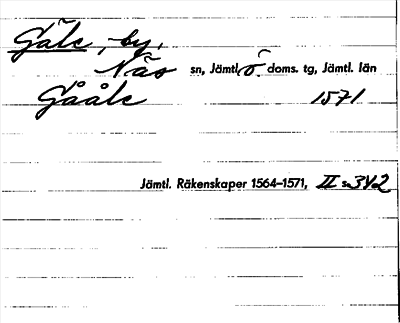 Gåle, by,
Näs sn, Jämtl. ö. doms. tg, Jämtl. län
Gååle 1571
Jämtl. Räkenskaper 1564–1571, II s. 342